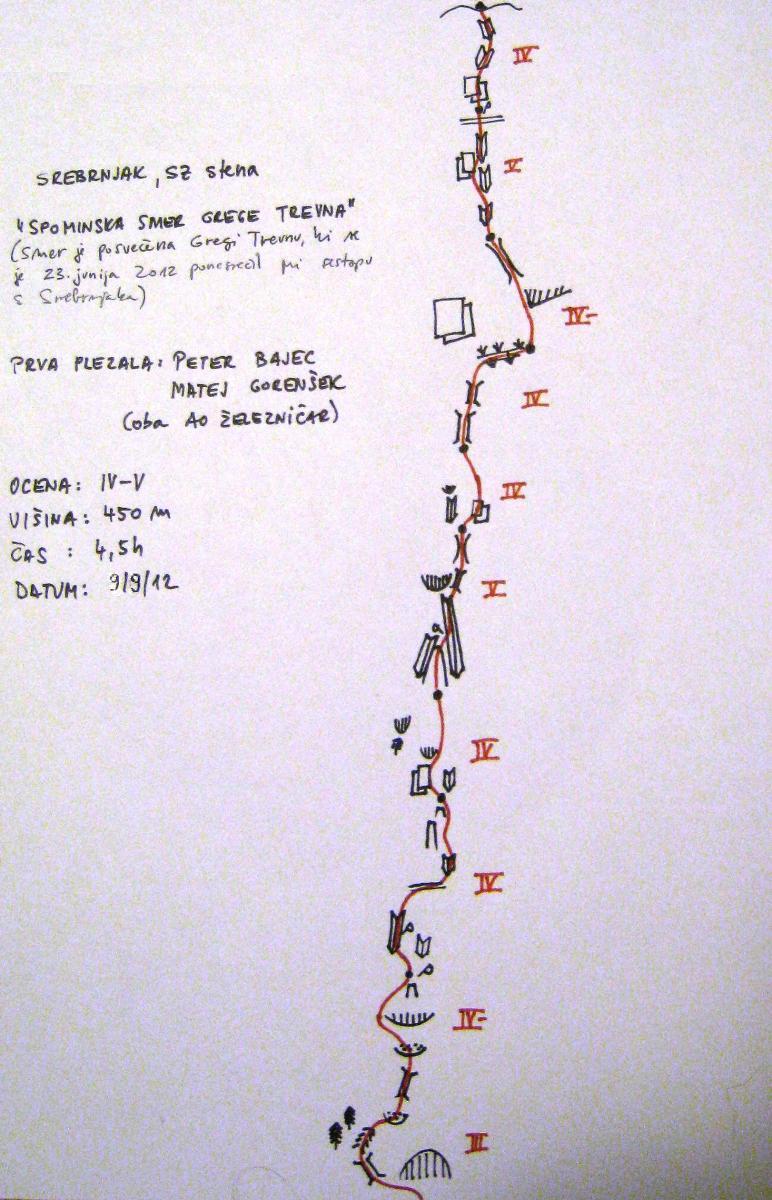 SREBRNJAK, SZ stena
"SPOMINSKA SMER GREGE TREVNA"
(Smer je posvečena Gregi Trevnu, ki se
je 23. junija 2012 ponesrečil pri sestopu
s Srebrnjaka)
PRVA PLEZALA: PETER BAJEC
MATEJ GORENŠEK
(oba AO ŽELEZNIČAR)
OCENA: IV-V
VIŠINA: 450 m
ČAS : 4,5h
DATUM: 9/9/12
IV
V
IV-
IV
IV
V
IV
IV
IV-
III